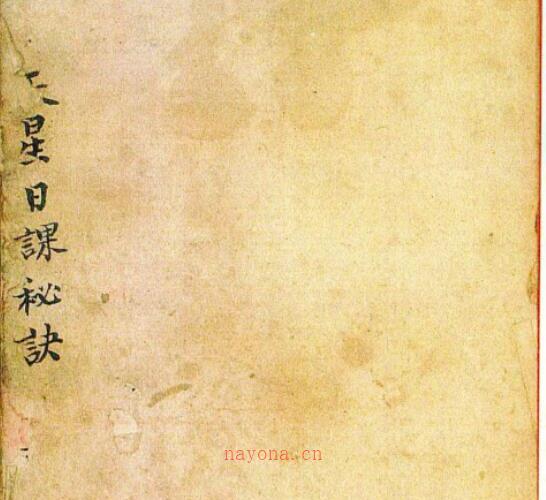 天星日課秘訣
nayona.cn